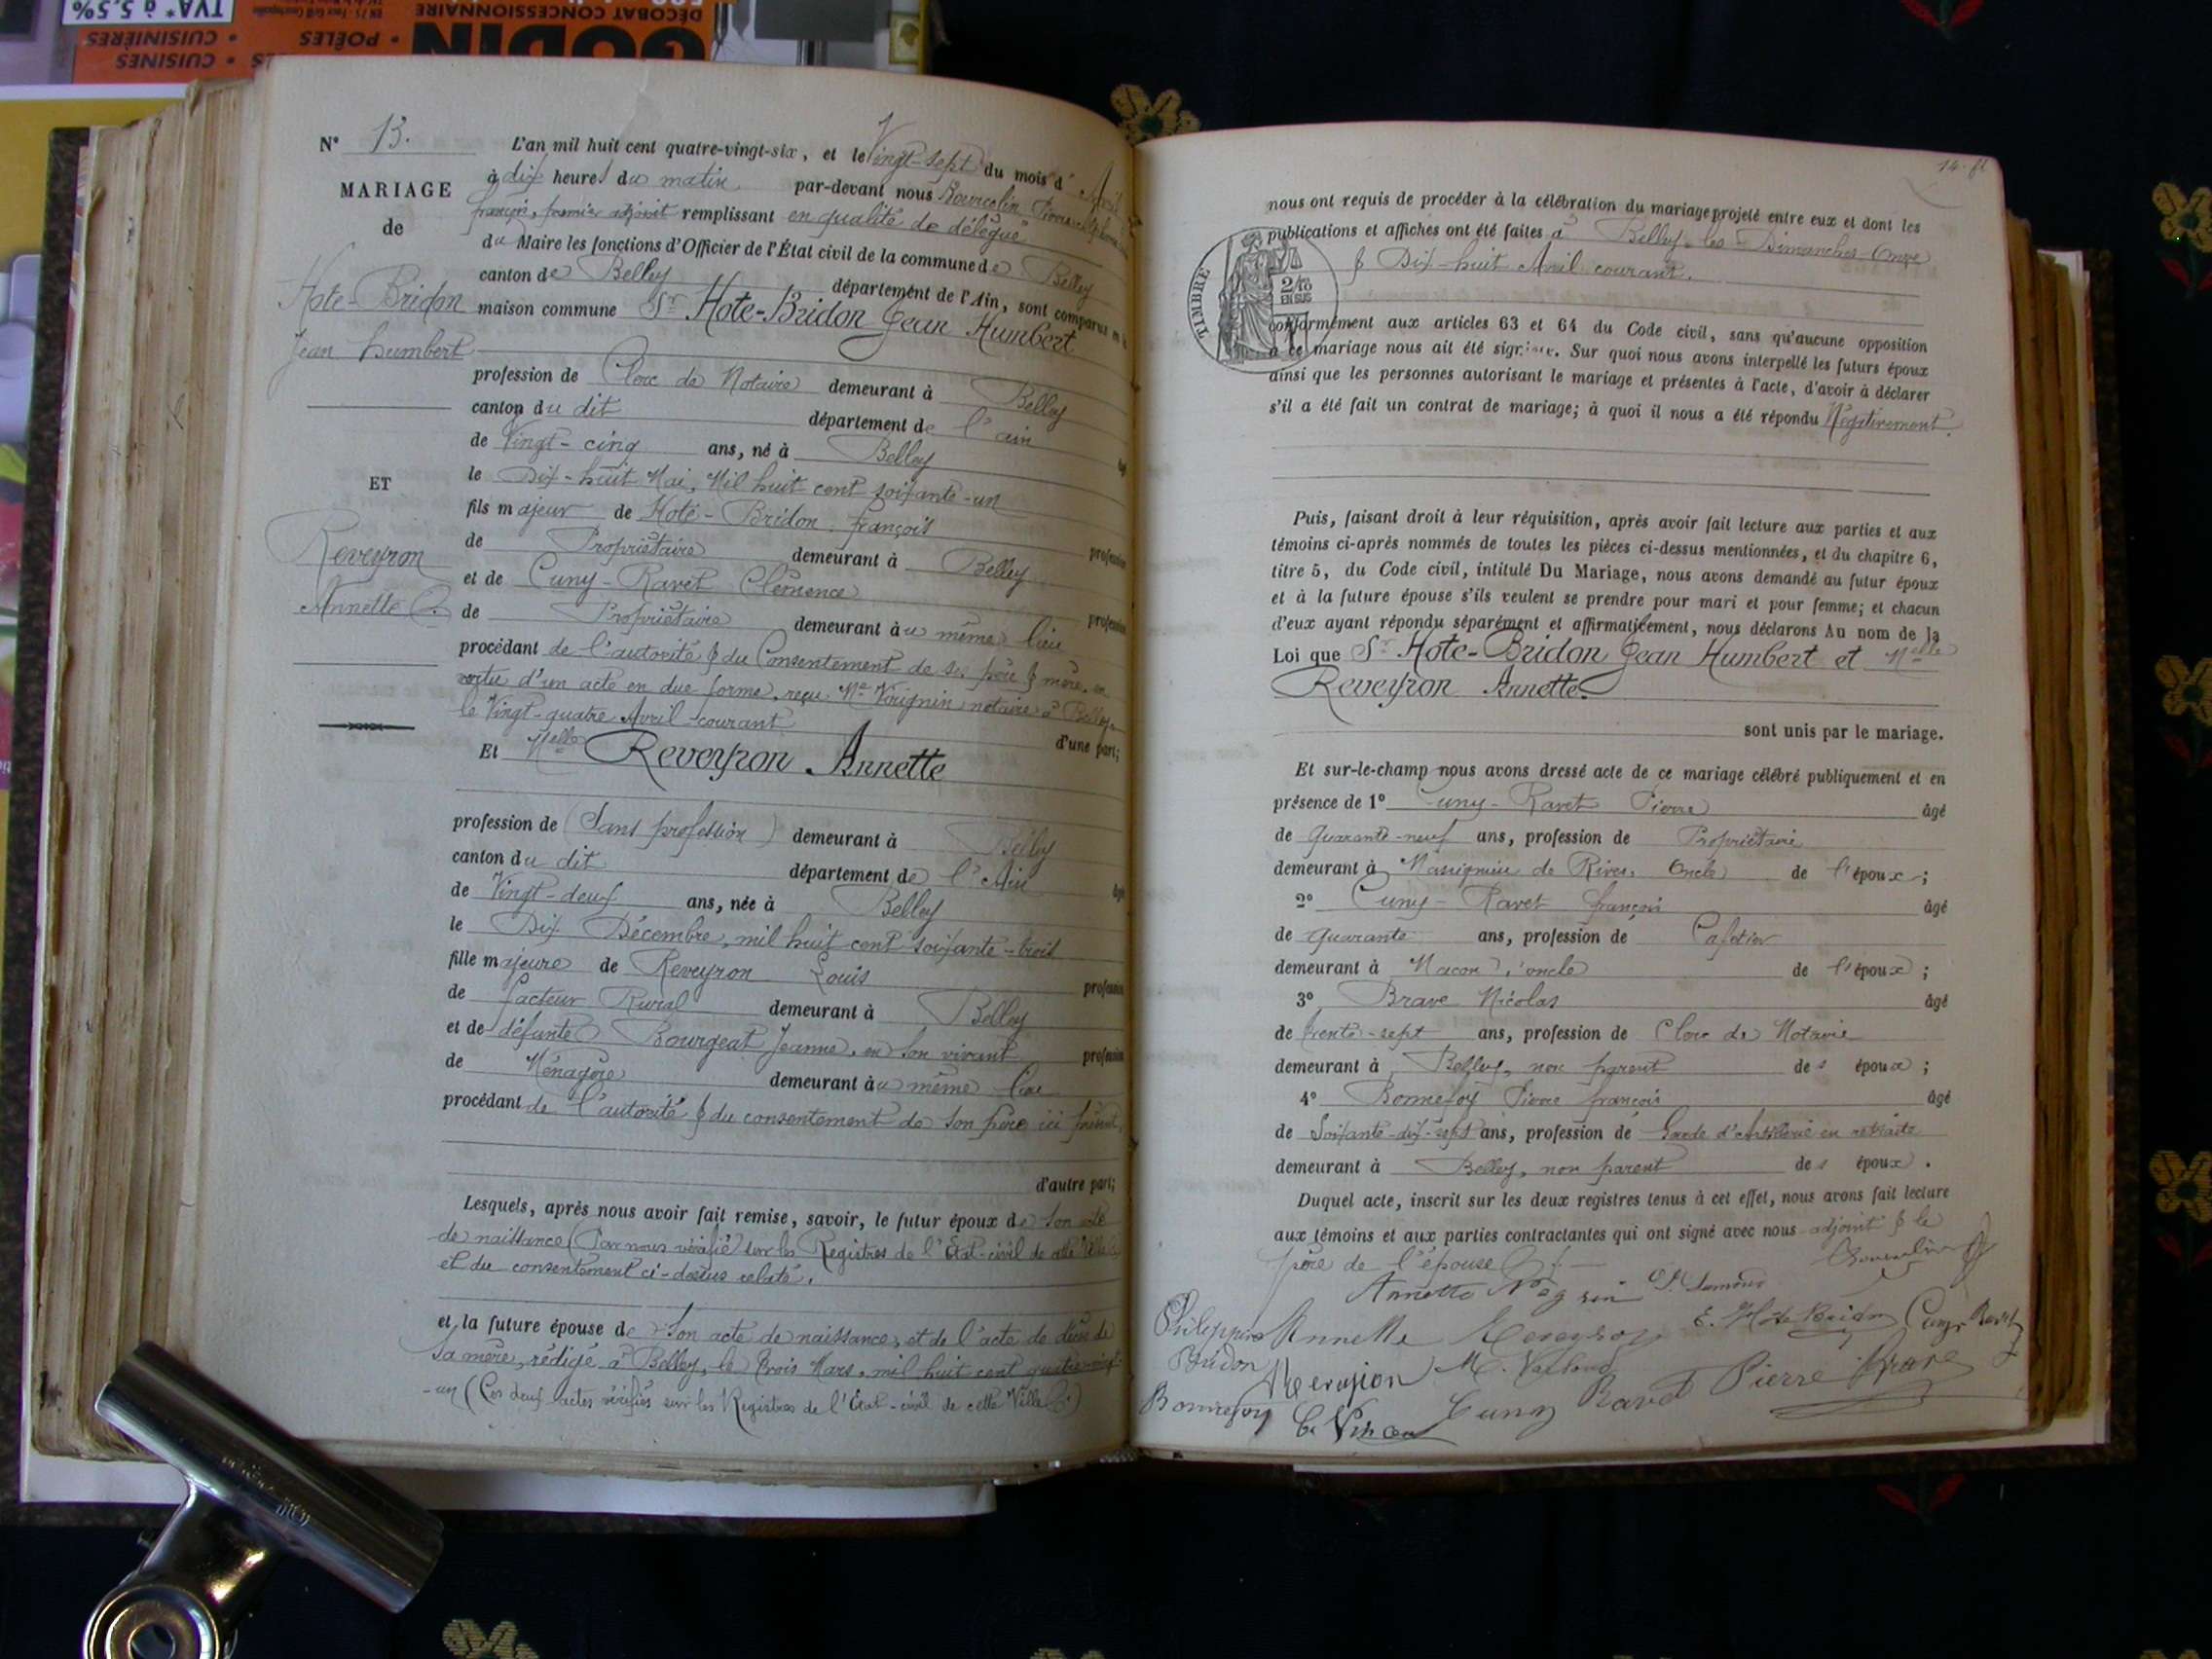 N° 13.
MARIAGE
de
Hote-Bridon
Jean humbert
ET
Reveyron
Annette
L'an mil huit cent quatre-vingt-six, et le Vingt-sept du mois d' Avril
à dix heures du matin par-devant nous Bourcelin Pierre
françois, premier adjoint remplissant en qualité de délégué
du Maire les fonctions d'Officier de l'État civil de la commune de Belley
canton de Belley département de l'Ain, sont comparus
maison commune Sr Hote-Bridon Jean Humbert
profession de Clerc de Notaire demeurant à Belley
canton du dit département de l'ain
de Vingt-cinq ans, né à Belley
le Dix-huit Mai, Mil huit cent soixante-un
fils majeur de Hote-Bridon françois
de Propriétaire demeurant à Belley
et de Cuny-Ravet Clémence
de Propriétaire demeurant au même lieu
procédant de l'autorité & du Consentement de ses père & mère, en
vertu d'un acte en due forme, reçu Me Virignin notaire à Belley
le Vingt-quatre Avril courant
d'une part;
Et Melle Reveyron Annette
profession de (Sans profession) demeurant à Belley
canton du dit département de l'Ain
de Vingt-deux ans, née à Belley
le Dix Décembre, mil huit cent soixante-trois
fille majeure de Reveyron Louis
de facteur Rural demeurant à Belley
et de défunte Bourgeat Jeanne, en son vivant
de Ménagère demeurant au même lieu
procédant de l'autorité & du consentement de son père ici présent,
d'autre part;
Lesquels, après nous avoir fait remise, savoir, le futur époux de son acte
de naissance (Par nous vérifié) sur les Registres de l'État-civil de cette Ville
et du consentement ci-dessus relaté.
et la future épouse de son acte de naissance, et de l'acte de décès de
sa mère, rédigé à Belley, le trois Mars, mil huit cent quatre-vingt-
-un (Ces deux actes vérifiés sur les Registres de l'État-civil de cette Ville.)
nous ont requis de procéder à la célébration du mariage projeté entre eux et dont les
publications et affiches ont été faites à Belley, les Dimanches Onze
& Dix-huit Avril courant.
TIMBRE
2/10
EN SUS
conformément aux articles 63 et 64 du Code civil, sans qu'aucune opposition
à ce mariage nous ait été signifiée. Sur quoi nous avons interpellé les futurs époux
ainsi que les personnes autorisant le mariage et présentes à l'acte, d'avoir à déclarer
s'il a été fait un contrat de mariage; à quoi il nous a été répondu Négativement.
Puis, faisant droit à leur réquisition, après avoir fait lecture aux parties et aux
témoins ci-après nommés de toutes les pièces ci-dessus mentionnées, et du chapitre 6,
titre 5, du Code civil, intitulé Du Mariage, nous avons demandé au futur époux
et à la future épouse s'ils veulent se prendre pour mari et pour femme; et chacun
d'eux ayant répondu séparément et affirmativement, nous déclarons Au nom de la
Loi que Sr Hote-Bridon Jean Humbert et Melle
Reveyron Annette
sont unis par le mariage.
Et sur-le-champ nous avons dressé acte de ce mariage célébré publiquement et en
présence de 1° Cuny-Ravet Pierre âgé
de quarante-neuf ans, profession de Propriétaire
demeurant à Massignieu de Rives, Oncle de l'époux;
2° Cuny-Ravet françois âgé
de quarante ans, profession de Cafetier
demeurant à Macon, oncle de l'époux;
3° Brave Nicolas âgé
de trente-sept ans, profession de Clerc de Notaire
demeurant à Belley, non parent des époux;
4° Bonnefoy Pierre françois âgé
de Soixante-dix-sept ans, profession de Garde d'Artillerie en retraite
demeurant à Belley, non parent des époux.
Duquel acte, inscrit sur les deux registres tenus à cet effet, nous avons fait lecture
aux témoins et aux parties contractantes qui ont signé avec nous adjoint & le
père de l'épouse
Philippine Annette Reveyron E. Hote Bridon Cuny Ravet
Bridon Reveyron Pierre Brave
Bonnefoy Cuny Ravet
GODIN
DÉCOBAT CONCESSIONNAIRE
• POÊLES • CUISINIÈRES
CUISINES
TVA* à 5,5%